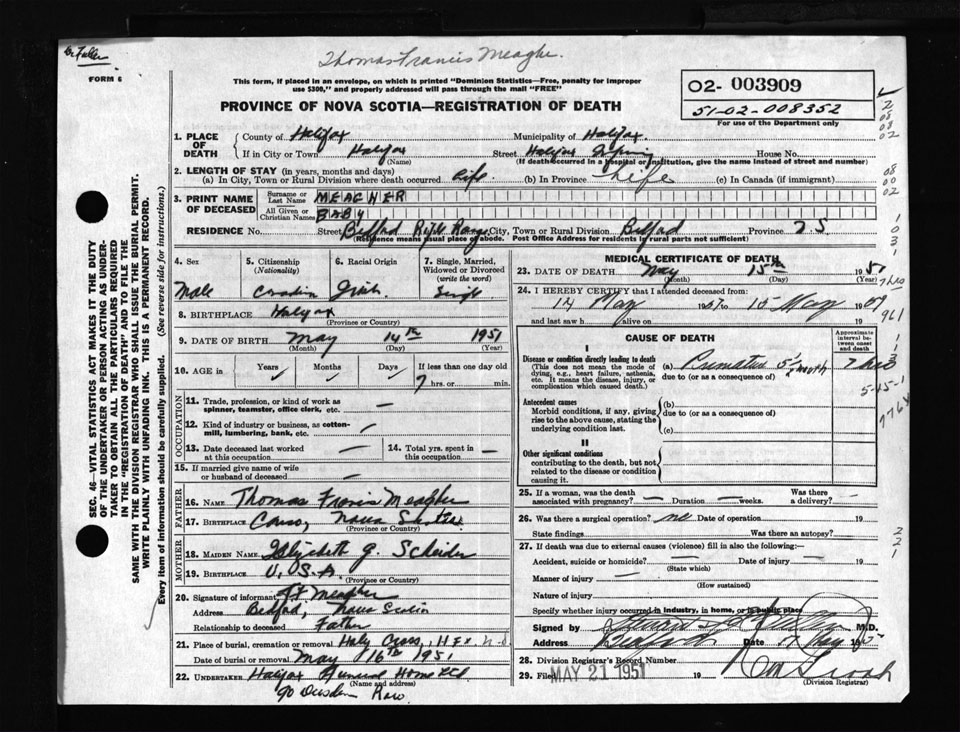 Dr. Fuller
FORM 6
Thomas Francis Meagher.
This form, if placed in an envelope, on which is printed "Dominion Statistics—Free, penalty for improper
use $300," and properly addressed will pass through the mail "FREE"
PROVINCE OF NOVA SCOTIA—REGISTRATION OF DEATH
02- 003909
51-02-008352
For use of the Department only
1. PLACE OF DEATH
County of Halifax Municipality of Halifax.
If in City or Town Halifax Street Halifax House No.
(Name) (If death occurred in a hospital or institution, give the name instead of street and number)
2. LENGTH OF STAY (in years, months and days)
(a) In City, Town or Rural Division where death occurred Life (b) In Province Life (c) In Canada (if immigrant)
3. PRINT NAME OF DECEASED
Surname or Last Name MEAGHER
All Given or Christian Names BABY
RESIDENCE No. Street Bedford Rifle Range City, Town or Rural Division Bedford Province N.S.
(Residence means usual place of abode. Post Office Address for residents in rural parts not sufficient)
4. Sex Male
5. Citizenship (Nationality) Canadian
6. Racial Origin Irish
7. Single, Married, Widowed or Divorced (write the word) Single
8. BIRTHPLACE Halifax
(Province or Country)
9. DATE OF BIRTH May 14th 1951
(Month) (Day) (Year)
10. AGE in Years Months Days If less than one day old
7 hrs. or min.
OCCUPATION
11. Trade, profession, or kind of work as spinner, teamster, office clerk, etc. —
12. Kind of industry or business, as cotton-mill, lumbering, bank, etc.
13. Date deceased last worked at this occupation —
14. Total yrs. spent in this occupation —
15. If married give name of wife or husband of deceased —
FATHER
16. NAME Thomas Francis Meagher
17. BIRTHPLACE Canso, Nova Scotia
(Province or Country)
MOTHER
18. MAIDEN NAME Elizabeth G.
19. BIRTHPLACE U.S.A.
(Province or Country)
20. Signature of informant T F Meagher
Address Bedford, Nova Scotia
Relationship to deceased Father
21. Place of burial, cremation or removal Holy Cross, Hfx N.S.
Date of burial or removal May 16th 1951
22. UNDERTAKER Halifax Funeral Home Ltd
(Name and address)
90 Dresden Row
MEDICAL CERTIFICATE OF DEATH
23. DATE OF DEATH May 15th 1951
(Month) (Day) (Year)
24. I HEREBY CERTIFY that I attended deceased from:
14 May 1951 to 15 May 1951
and last saw h alive on 19
CAUSE OF DEATH
Approximate interval between onset and death
I
Disease or condition directly leading to death
(This does not mean the mode of dying, e.g., heart failure, asthenia, etc. It means the disease, injury, or complication which caused death.)
(a) Premature 5½ month 7 hrs
due to (or as a consequence of)
Antecedent causes
Morbid conditions, if any, giving rise to the above cause, stating the underlying condition last.
(b)
due to (or as a consequence of)
(c)
II
Other significant conditions
contributing to the death, but not related to the disease or condition causing it
25. If a woman, was the death associated with pregnancy? — Duration — weeks. Was there a delivery? —
26. Was there a surgical operation? no Date of operation 19
State findings Was there an autopsy?
27. If death was due to external causes (violence) fill in also the following:—
Accident, suicide or homicide? — Date of injury — 19
(State which)
Manner of injury —
(How sustained)
Nature of injury
Specify whether injury occurred in industry, in home, or in public place
Signed by M.D.
Address Bedford Date 17 May
28. Division Registrar's Record Number
29. Filed MAY 21 1951 19
(Division Registrar)
SEC. 46—VITAL STATISTICS ACT MAKES IT THE DUTY
OF THE UNDERTAKER OR PERSON ACTING AS UNDER-
TAKER TO OBTAIN ALL THE PARTICULARS REQUIRED
IN THE "REGISTRATION OF DEATH" AND TO FILE THE
SAME WITH THE DIVISION REGISTRAR WHO SHALL ISSUE THE BURIAL PERMIT.
WRITE PLAINLY WITH UNFADING INK. THIS IS A PERMANENT RECORD.
Every item of information should be carefully supplied. (See reverse side for instructions.)
2
08
08
02
08
00
02
1
0
3
7 hrs
961
3
5-15-1
776x
2
2
1